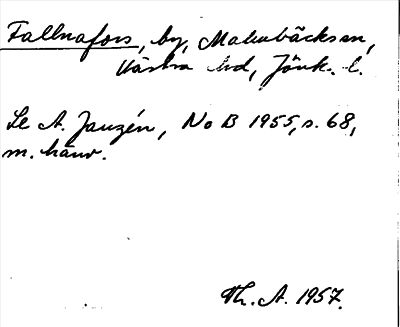 Fallnafors, by, Malmbäcks sn,
Västra hd, Jönk. l.
Se A. Janzén, No B 1955, s. 68,
m. hänv.
Th. A. 1957.